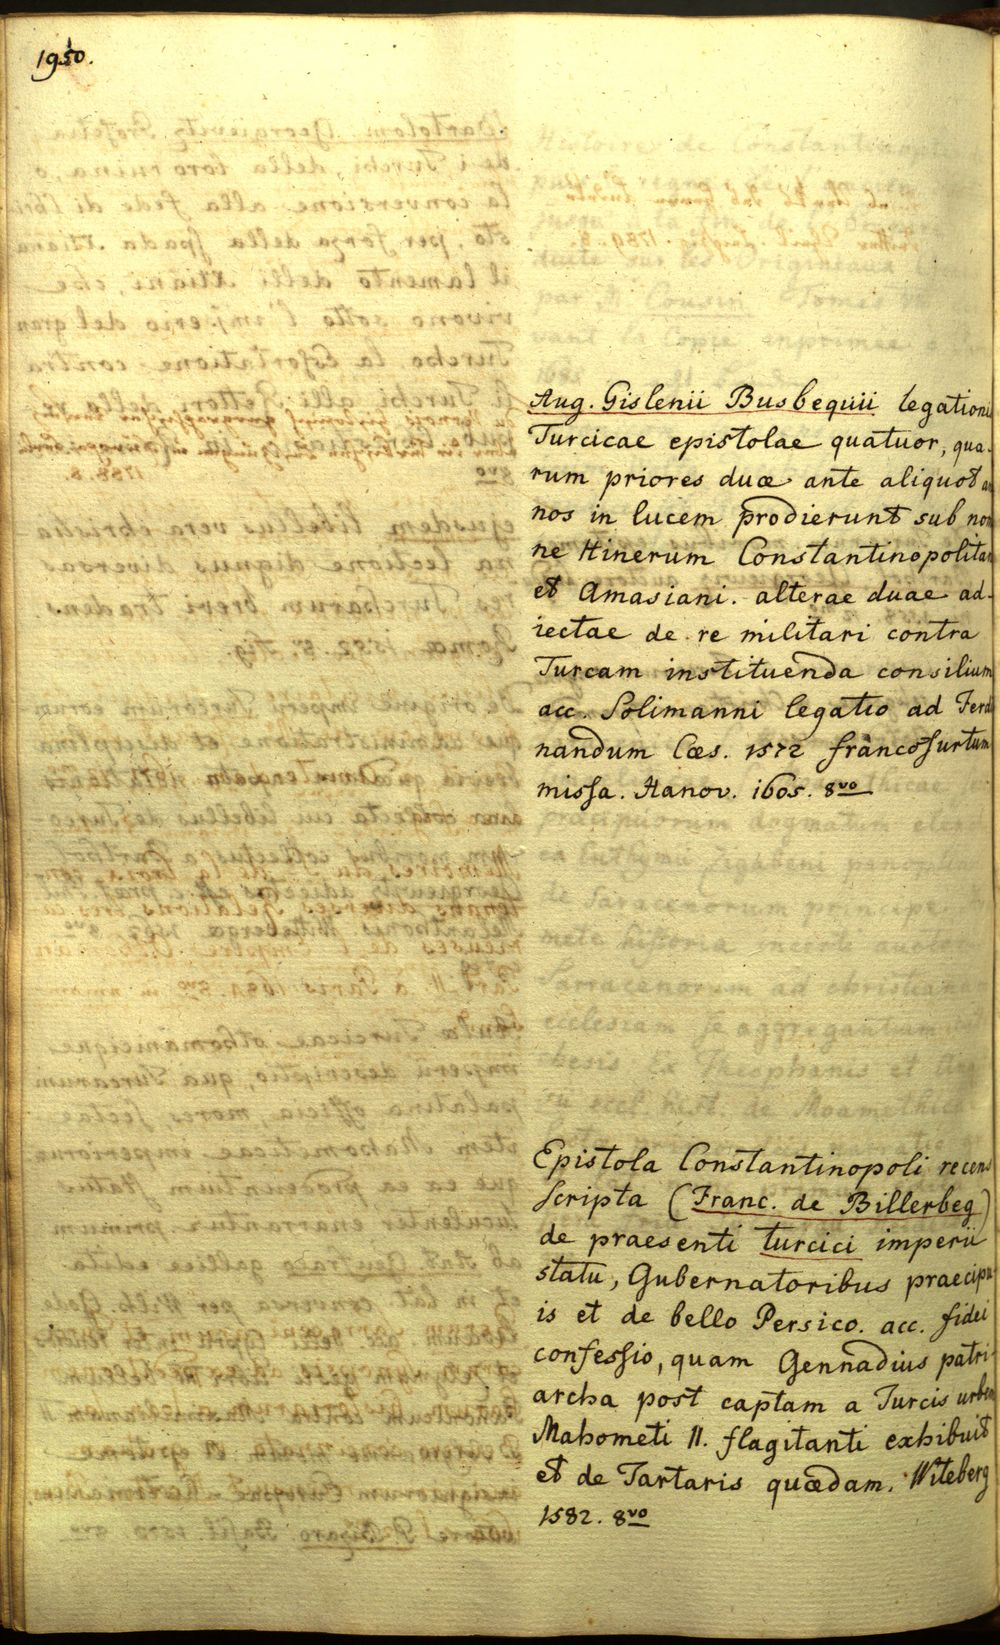 1950.
Aug. Gislenii Busbequii legationis
Turcicae epistolae quatuor, qua-
rum priores duæ ante aliquot an
nos in lucem prodierunt sub nom
ne Itinerum Constantinopolitan
et Amasiani. alterae duae ad-
iectae de re militari contra
Turcam instituenda consilium
acc. Solimanni legatio ad Ferdi
nandum Cæs. 1572 francofurtum
missa. Hanov. 1605. 8vo
Epistola Constantinopoli recens
scripta (Franc. de Billerbeg)
de praesenti turcici imperii
statu, Gubernatoribus praecipu
is et de bello Persico. acc. fidei
confessio, quam Gennadius patri-
archa post captam a Turcis urbem
Mahometi II. flagitanti exhibuit
et de Tartaris quædam. Witeberg
1582. 8vo